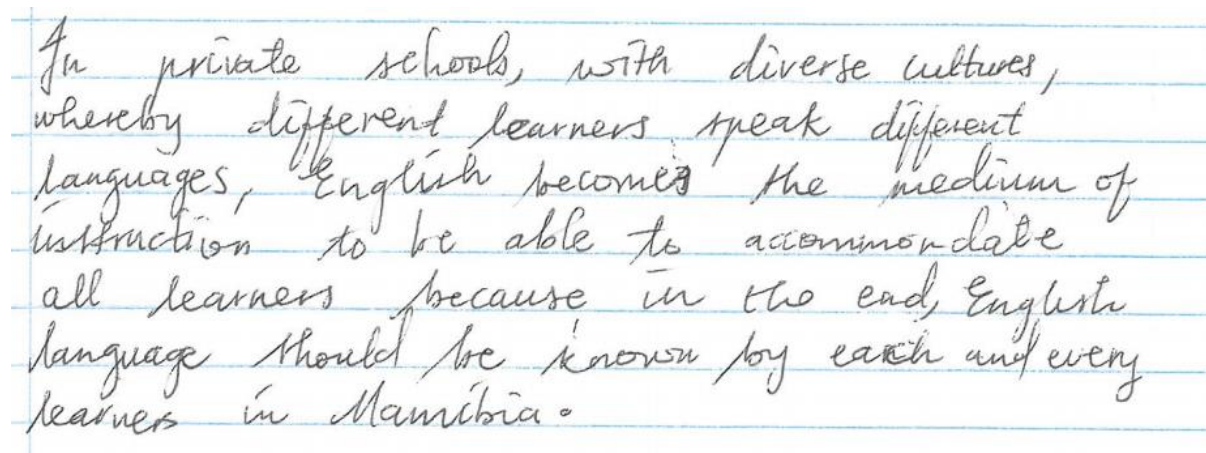 In private schools, with diverse cultures,
whereby different learners speak different
languages, English becomes the medium of
instruction to be able to accommondate
all learners because in the end, English
language should be known by each and every
learners in Namibia.